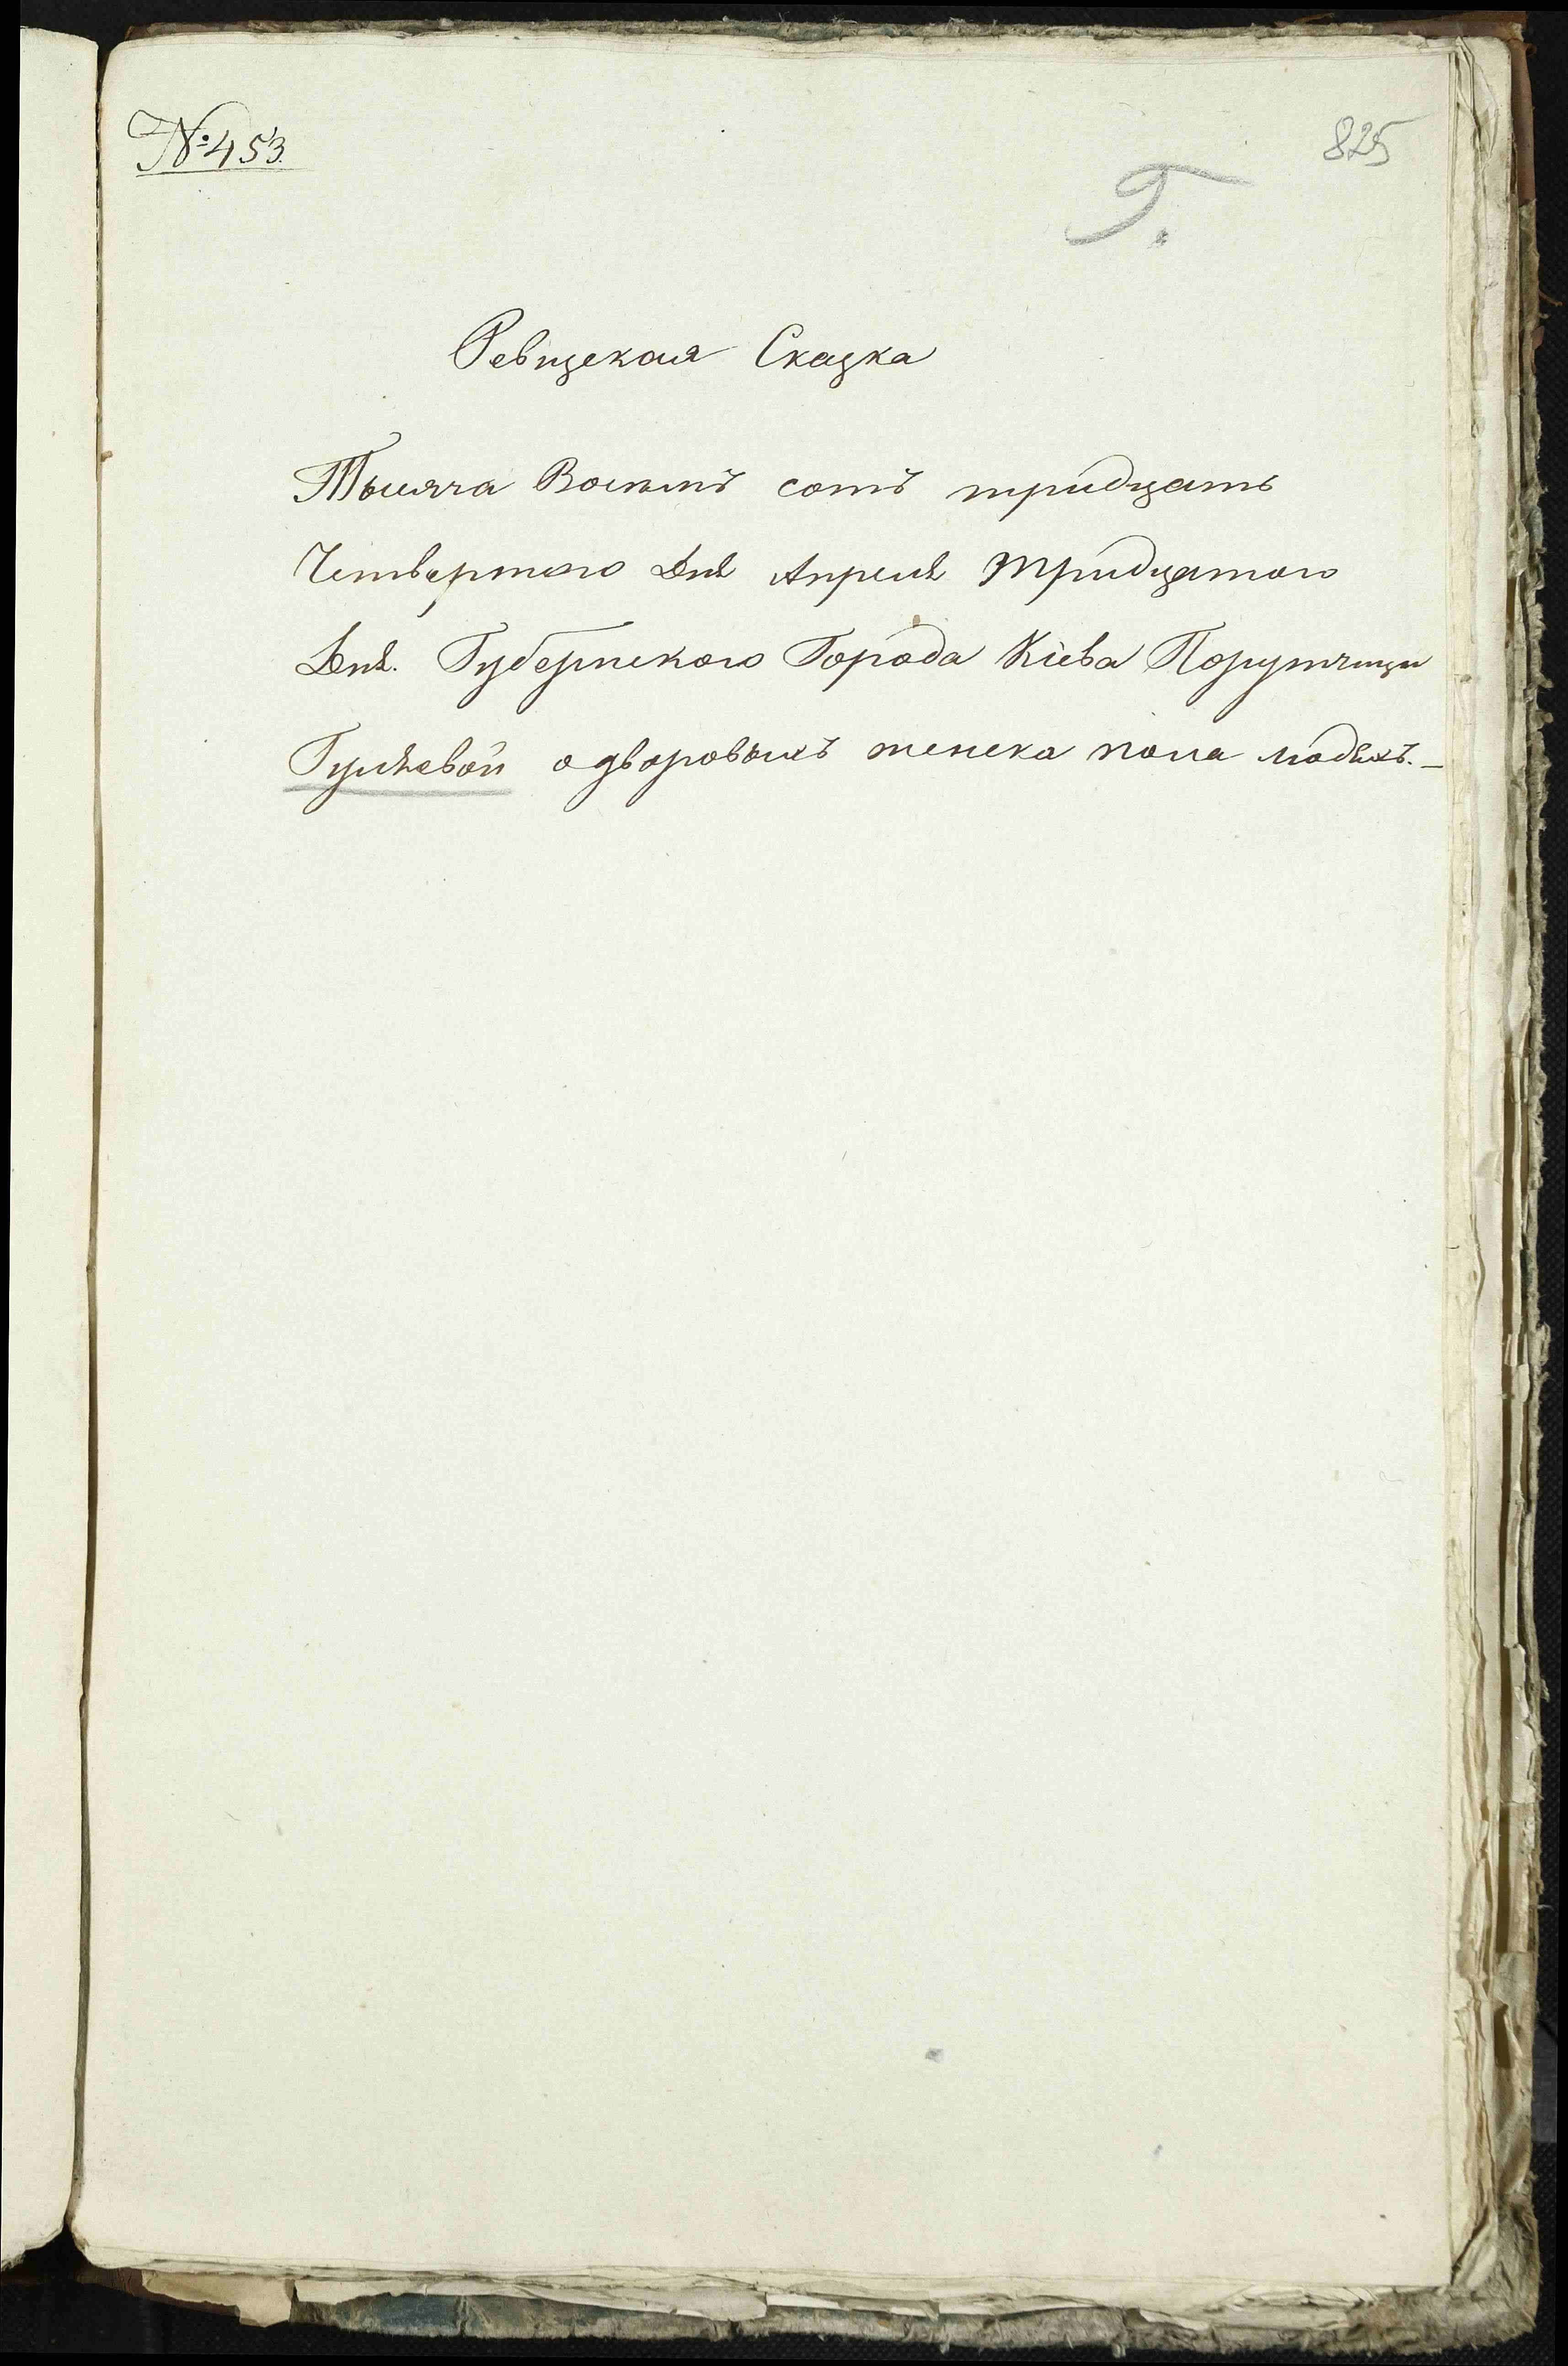 № 453.
825
Г.
Ревизская Сказка
Тысяча Восемъ сотъ тридцать
Четвертого дня Апреля тридцатого
дня. Губернского Города Кіева Порутчицы
одворовыхъ женска пола людяхъ.—